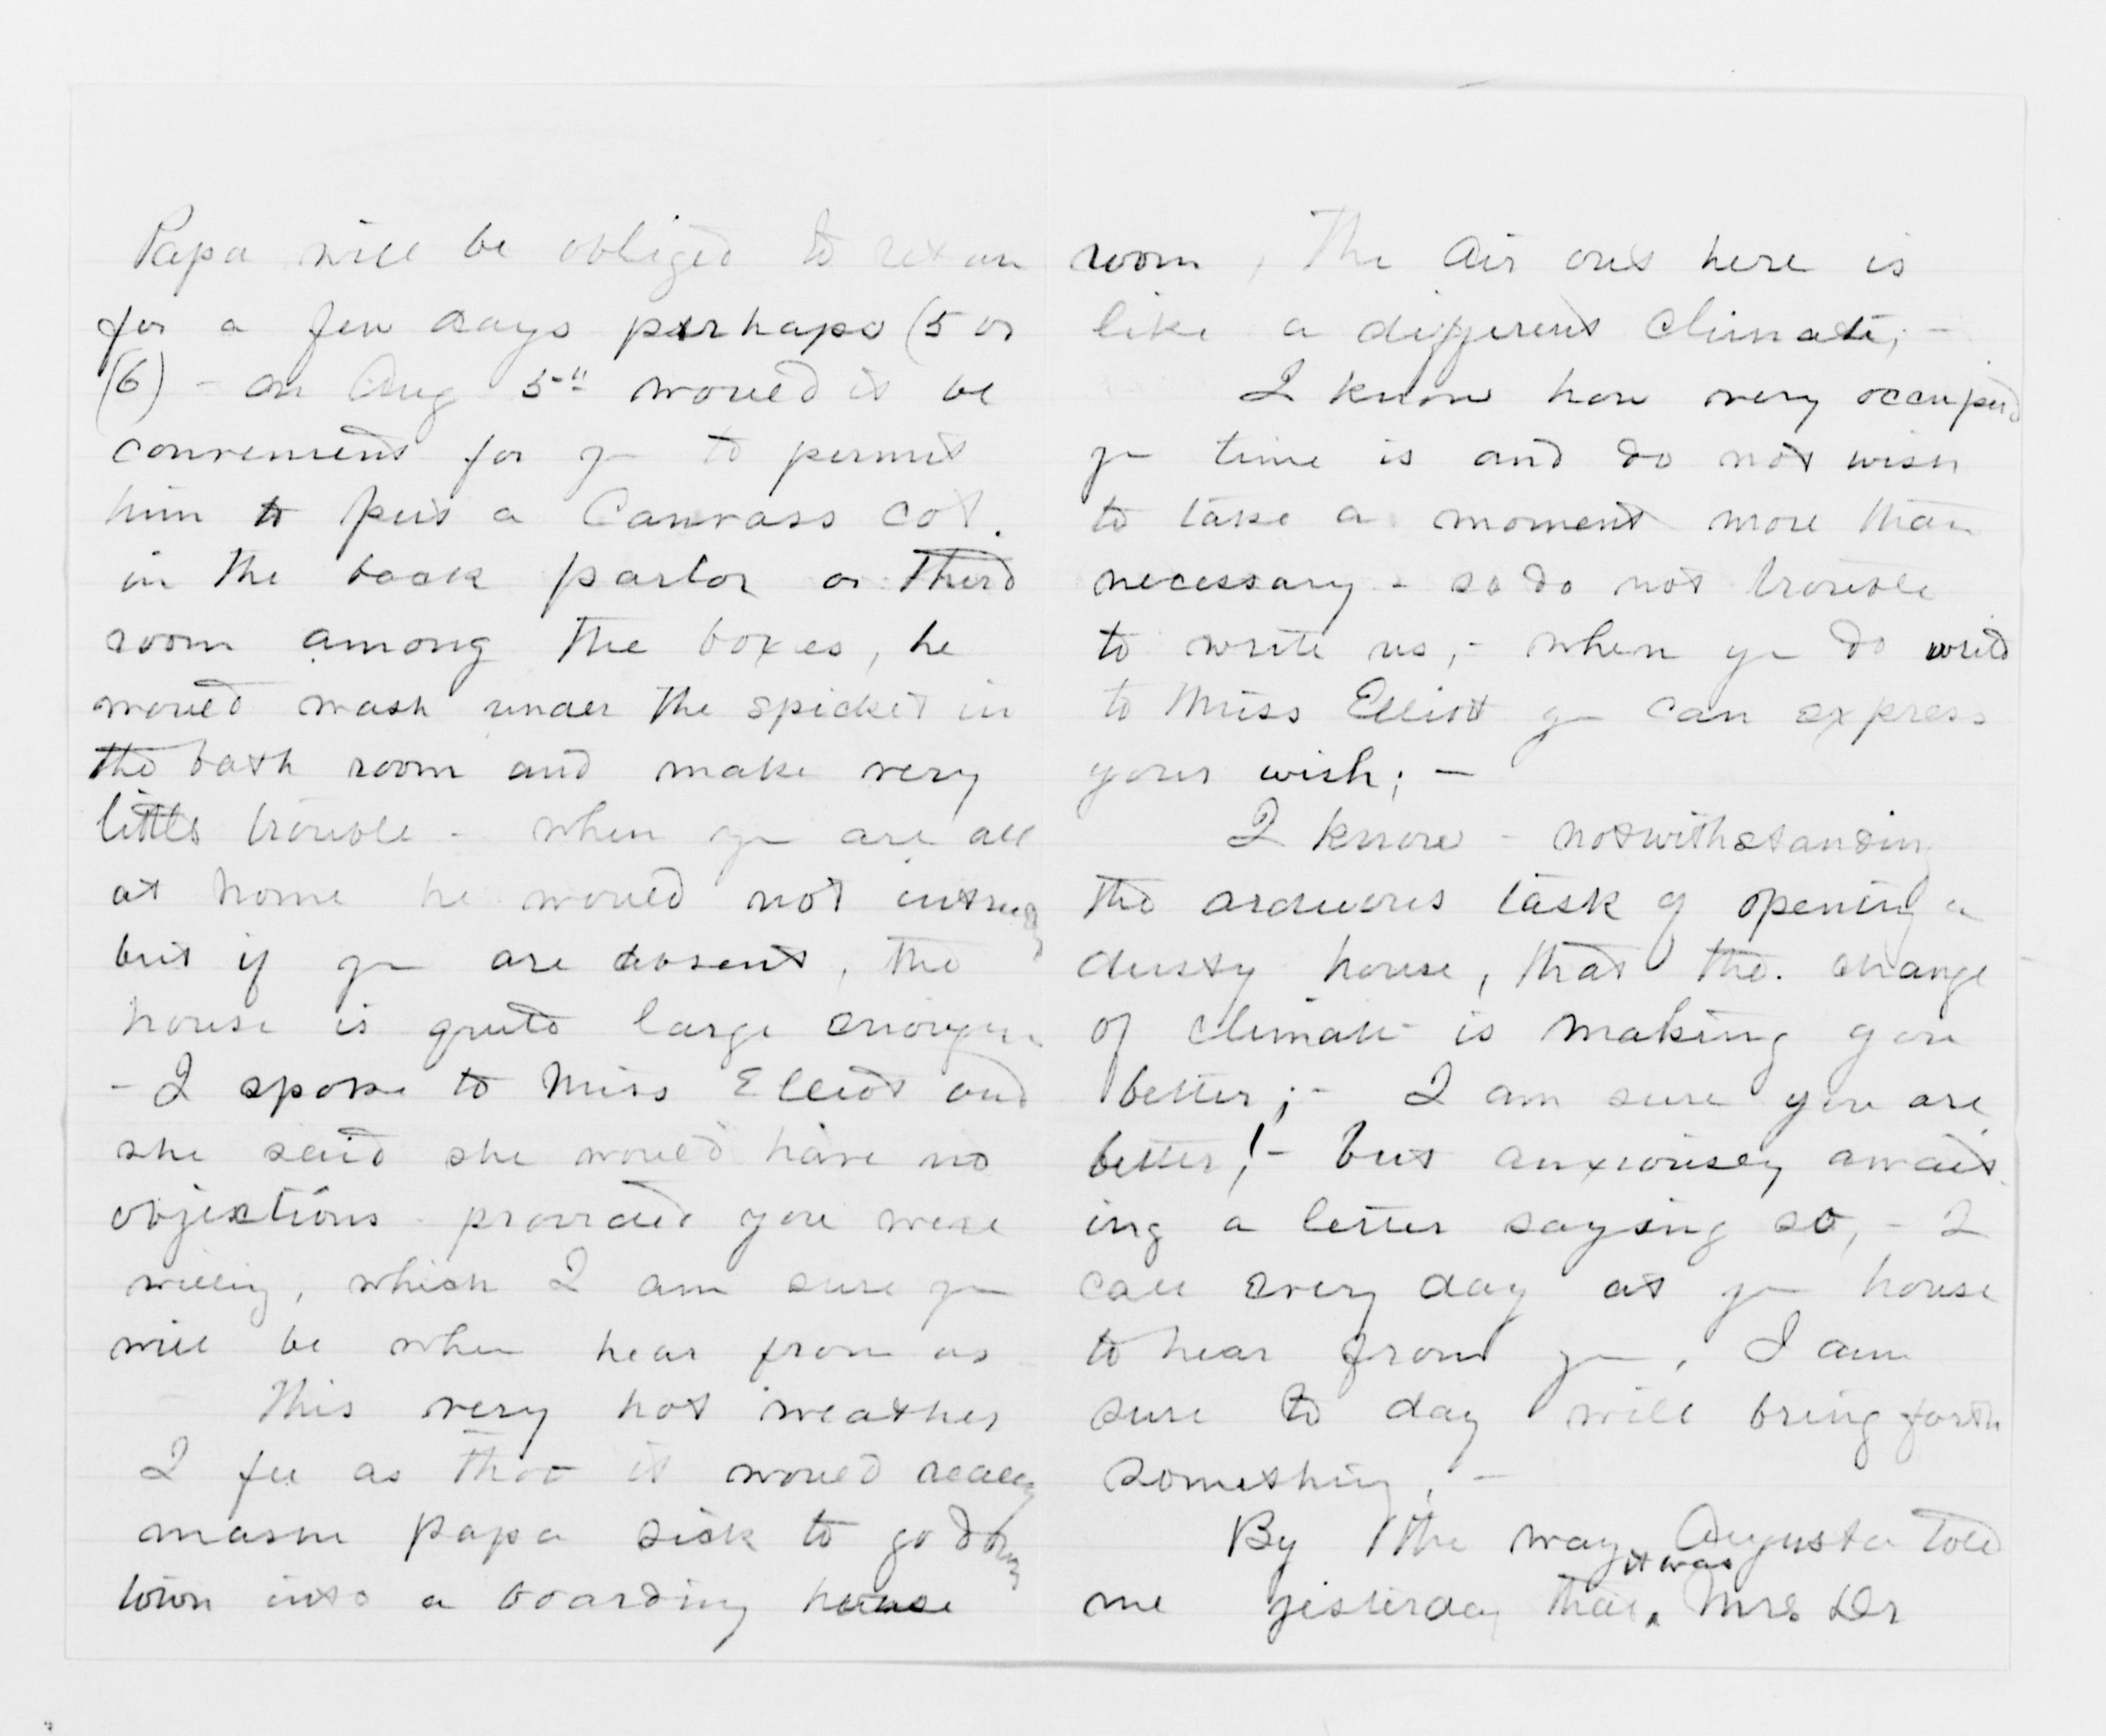 Papa will be obliged to return
for a few days perhaps (5 or
(6) - on Aug 5" would it be
convenient for yu to permit
him to put a Canvass cot.
in the back parlor or third
room among the boxes, he
would wash under the spicket in
the bath room and make very
little trouble - when yu are all
at home he would not intrude
but if yu are absent, the
house is quite large enough
- I spoke to Miss Elliot and
she said she would have no
objections - provided you were
willing, which I am sure yu
will be when hear from us
This very hot weather
I feel as tho it would really
make Papa sick to go down
town into a boarding house
room, The air out here is
like a different climate; -
I know how very occupied
yr time is and do not wish
to take a moment more than
necessary - so do not trouble
to write us, - when yu do write
to Miss Elliott yu can express
your wish; -
I know - notwithstanding
the arduous task of opening a
dusty house, that the. change
of climate is making you
better; - I am sure you are
better! - but anxiously await
ing a letter saying so, - I
call every day at yr house
to hear from yu, I am
sure to day will bring forth
something, -
By the way Augusta told
me yesterday that it was Mrs Dr